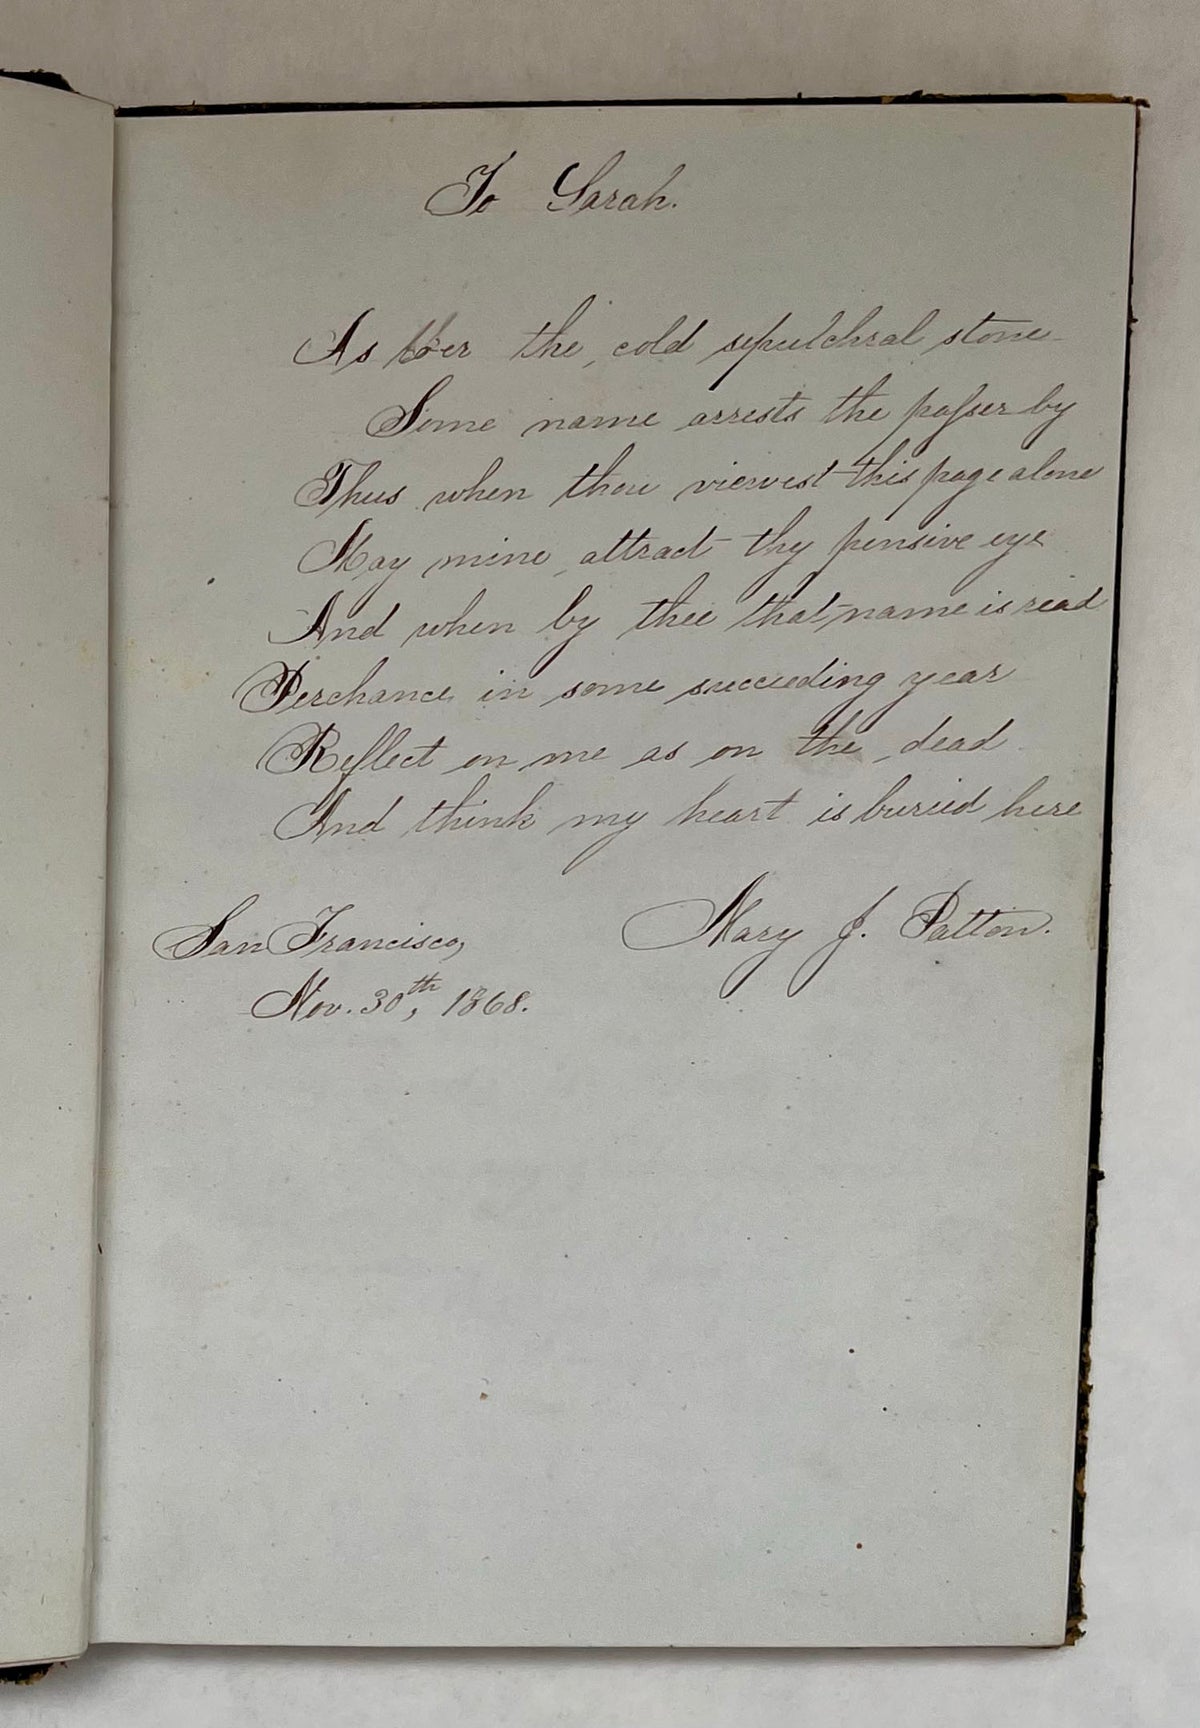 To Sarah.
As o'er the cold sepulchral stone
Some name arrests the passer by
Thus when thou viewest this page alone
May mine attract thy pensive eye
And when by thee that name is read
Perchance in some succeeding year
Reflect on me as on the dead
And think my heart is buried here
Mary J. Patton.
San Francisco,
Nov. 30th, 1868.